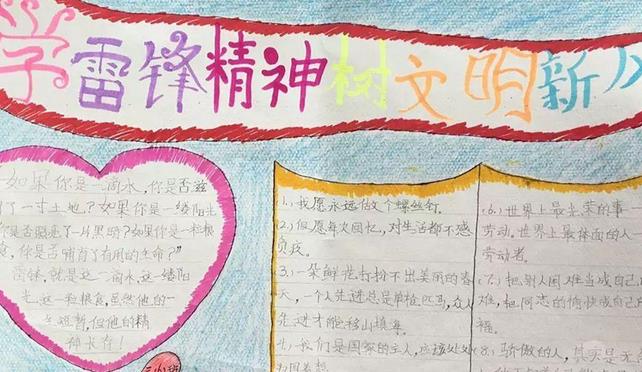 学雷锋精神树文明新
如果你是一滴水,你是否滋
了一寸土地?如果你是一缕阳光
你是否照亮了一片黑暗?如果你是一粮
食,你是否哺育了有用的生命?"
雷锋,就是这一滴水,这一缕阳
光,这一粮食,虽然他的一
生短暂,但他的精
神长存!
(1.)我愿永远做个螺丝钉.
(2.)但愿每次回忆,对生活都不感
负疚.
(3.)一朵鲜花打扮不出美丽的春
天,一个人先进总是单枪匹马,众人
先进才能移山填海.
我们是国家的主人,应该处处
(6.)世界上最光荣的事一
劳动.世界上最体面的人一
劳动者.
(7.)把别人困难当成自己
难,把同志的愉快成自己
福.
(8.)骄傲的人,其实是无